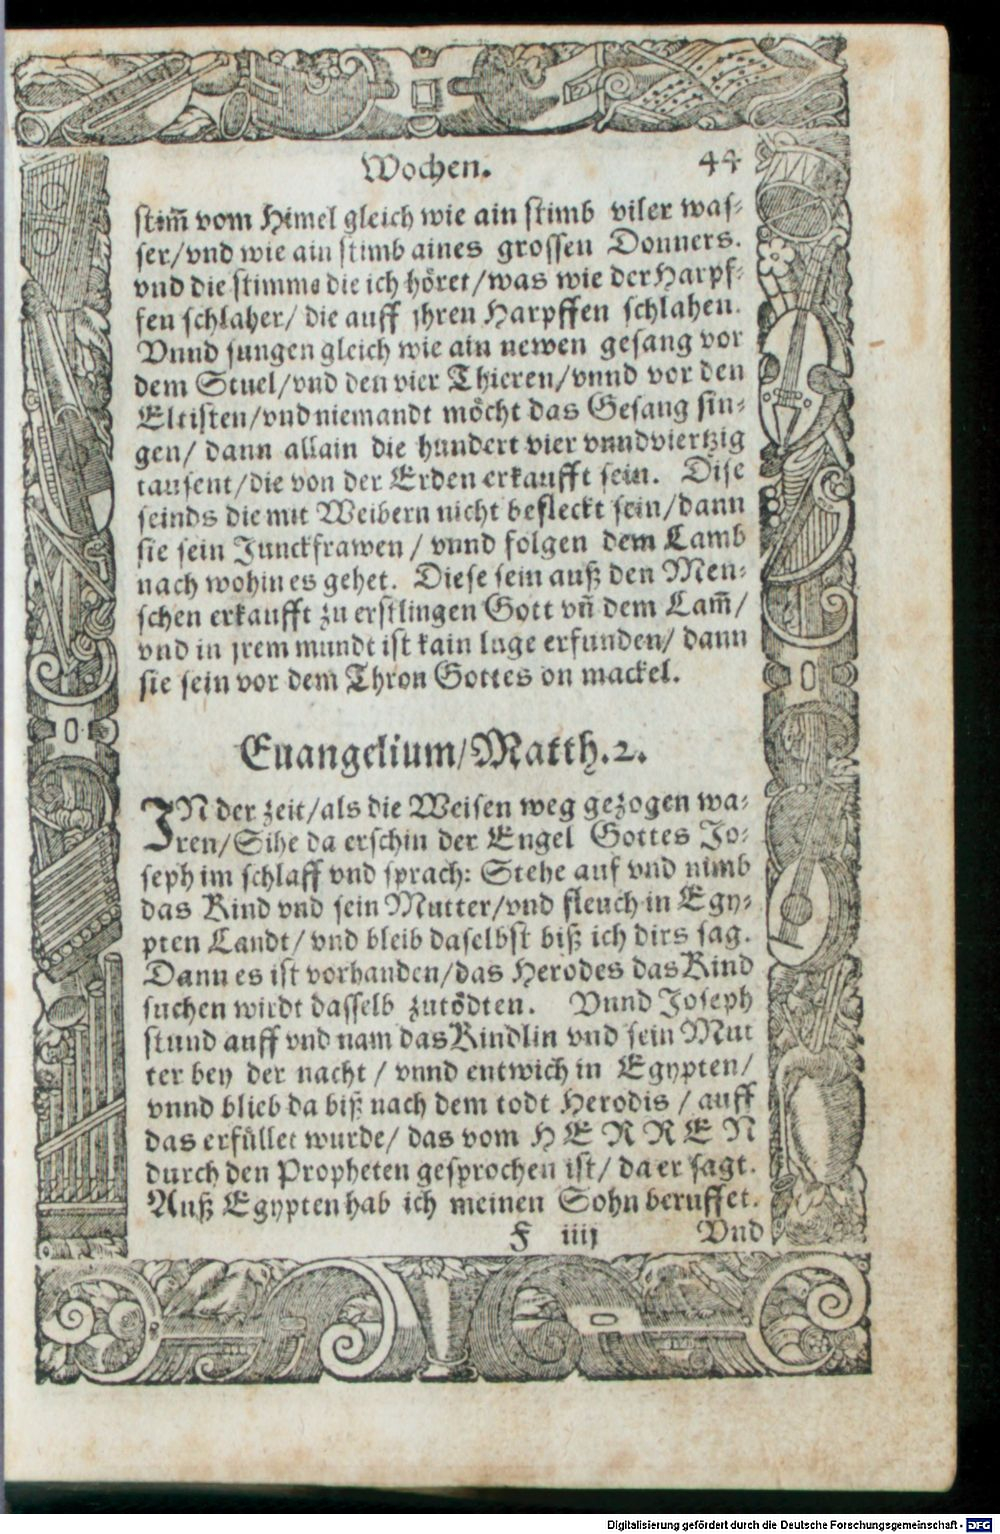 Wochen. 44
stim̃ vom Himel gleich wie ain stimb viler was⸗
ser/vnd wie ain stimb aines grossen Donners.
vnd die stimme die ich höret/was wie der Harpf⸗
fen schlaher/ die auff jhren Harpffen schlahen.
Vnnd sungen gleich wie ain newen gesang vor
dem Stuel/vnd den vier Thieren/vnnd vor den
Eltisten/vnd niemandt möcht das Gesang sin⸗
gen/ dann allain die hundert vier vnndviertzig
tausent/die von der Erden erkaufft sein. Dise
seinds die mit Weibern nicht befleckt sein/dann
sie sein Junckfrawen / vnnd folgen dem Lamb
nach wohin es gehet. Diese sein auß den Men⸗
schen erkaufft zu erstlingen Gott vñ dem Lam̃/
vnd in jrem mundt ist kain luge erfunden/ dann
sie sein vor dem Thron Gottes on mackel.
Euangelium/Matth.2.
IN der zeit/als die Weisen weg gezogen wa⸗
ren/Sihe da erschin der Engel Gottes Jo⸗
seph im schlaff vnd sprach: Stehe auf vnd nimb
das Kind vnd sein Mutter/vnd fleuch in Egy⸗
pten Landt/ vnd bleib daselbst biß ich dirs sag.
Dann es ist vorhanden/das Herodes das Kind
suchen wirdt dasselb zutödten. Vnnd Joseph
stund auff vnd nam das Kindlin vnd sein Mut
ter bey der nacht / vnnd entwich in Egypten/
vnnd blieb da biß nach dem todt Herodis / auff
das erfüllet wurde/ das vom HERREN
durch den Propheten gesprochen ist/ da er sagt.
Auß Egypten hab ich meinen Sohn beruffet.
F iiij Vnd
Digitalisierung gefördert durch die Deutsche Forschungsgemeinschaft - DFG